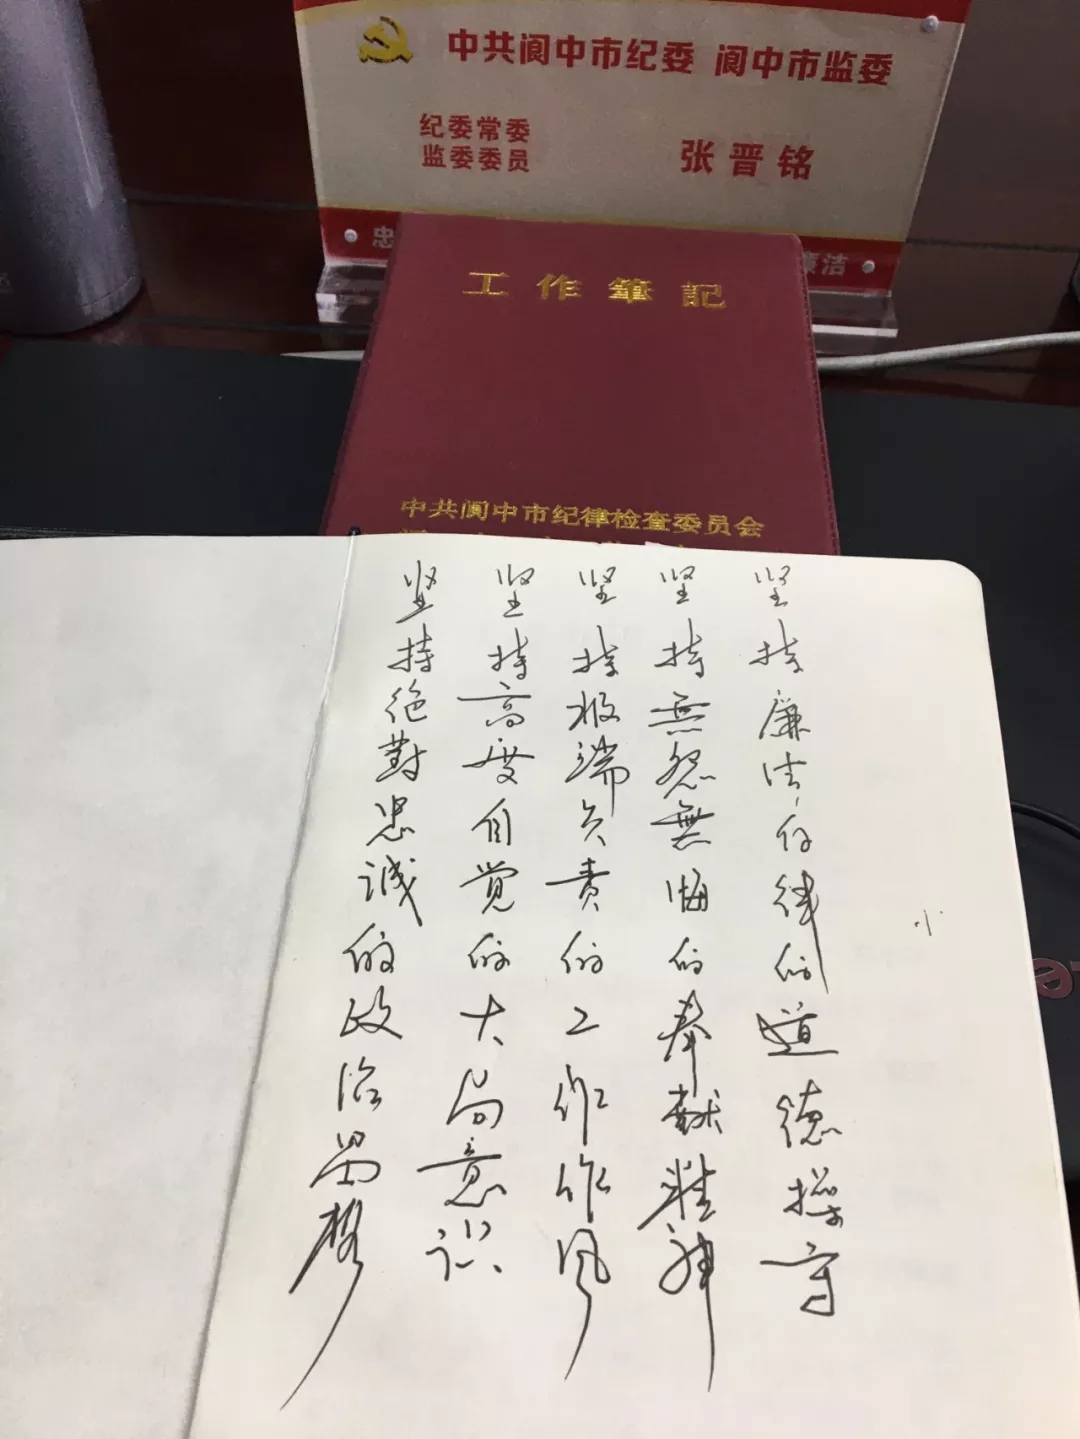 中共阆中市纪委 阆中市监委
纪委常委
监委委员
张晋铭
忠
廉洁
工作筆記
中共阆中市纪律检查委员会
坚持绝對忠诚的政治品格
坚持高度自觉的大局意识
坚持极端负责的工作作风
坚持無怨無悔的奉献精神
坚持廉洁自律的道德操守
小